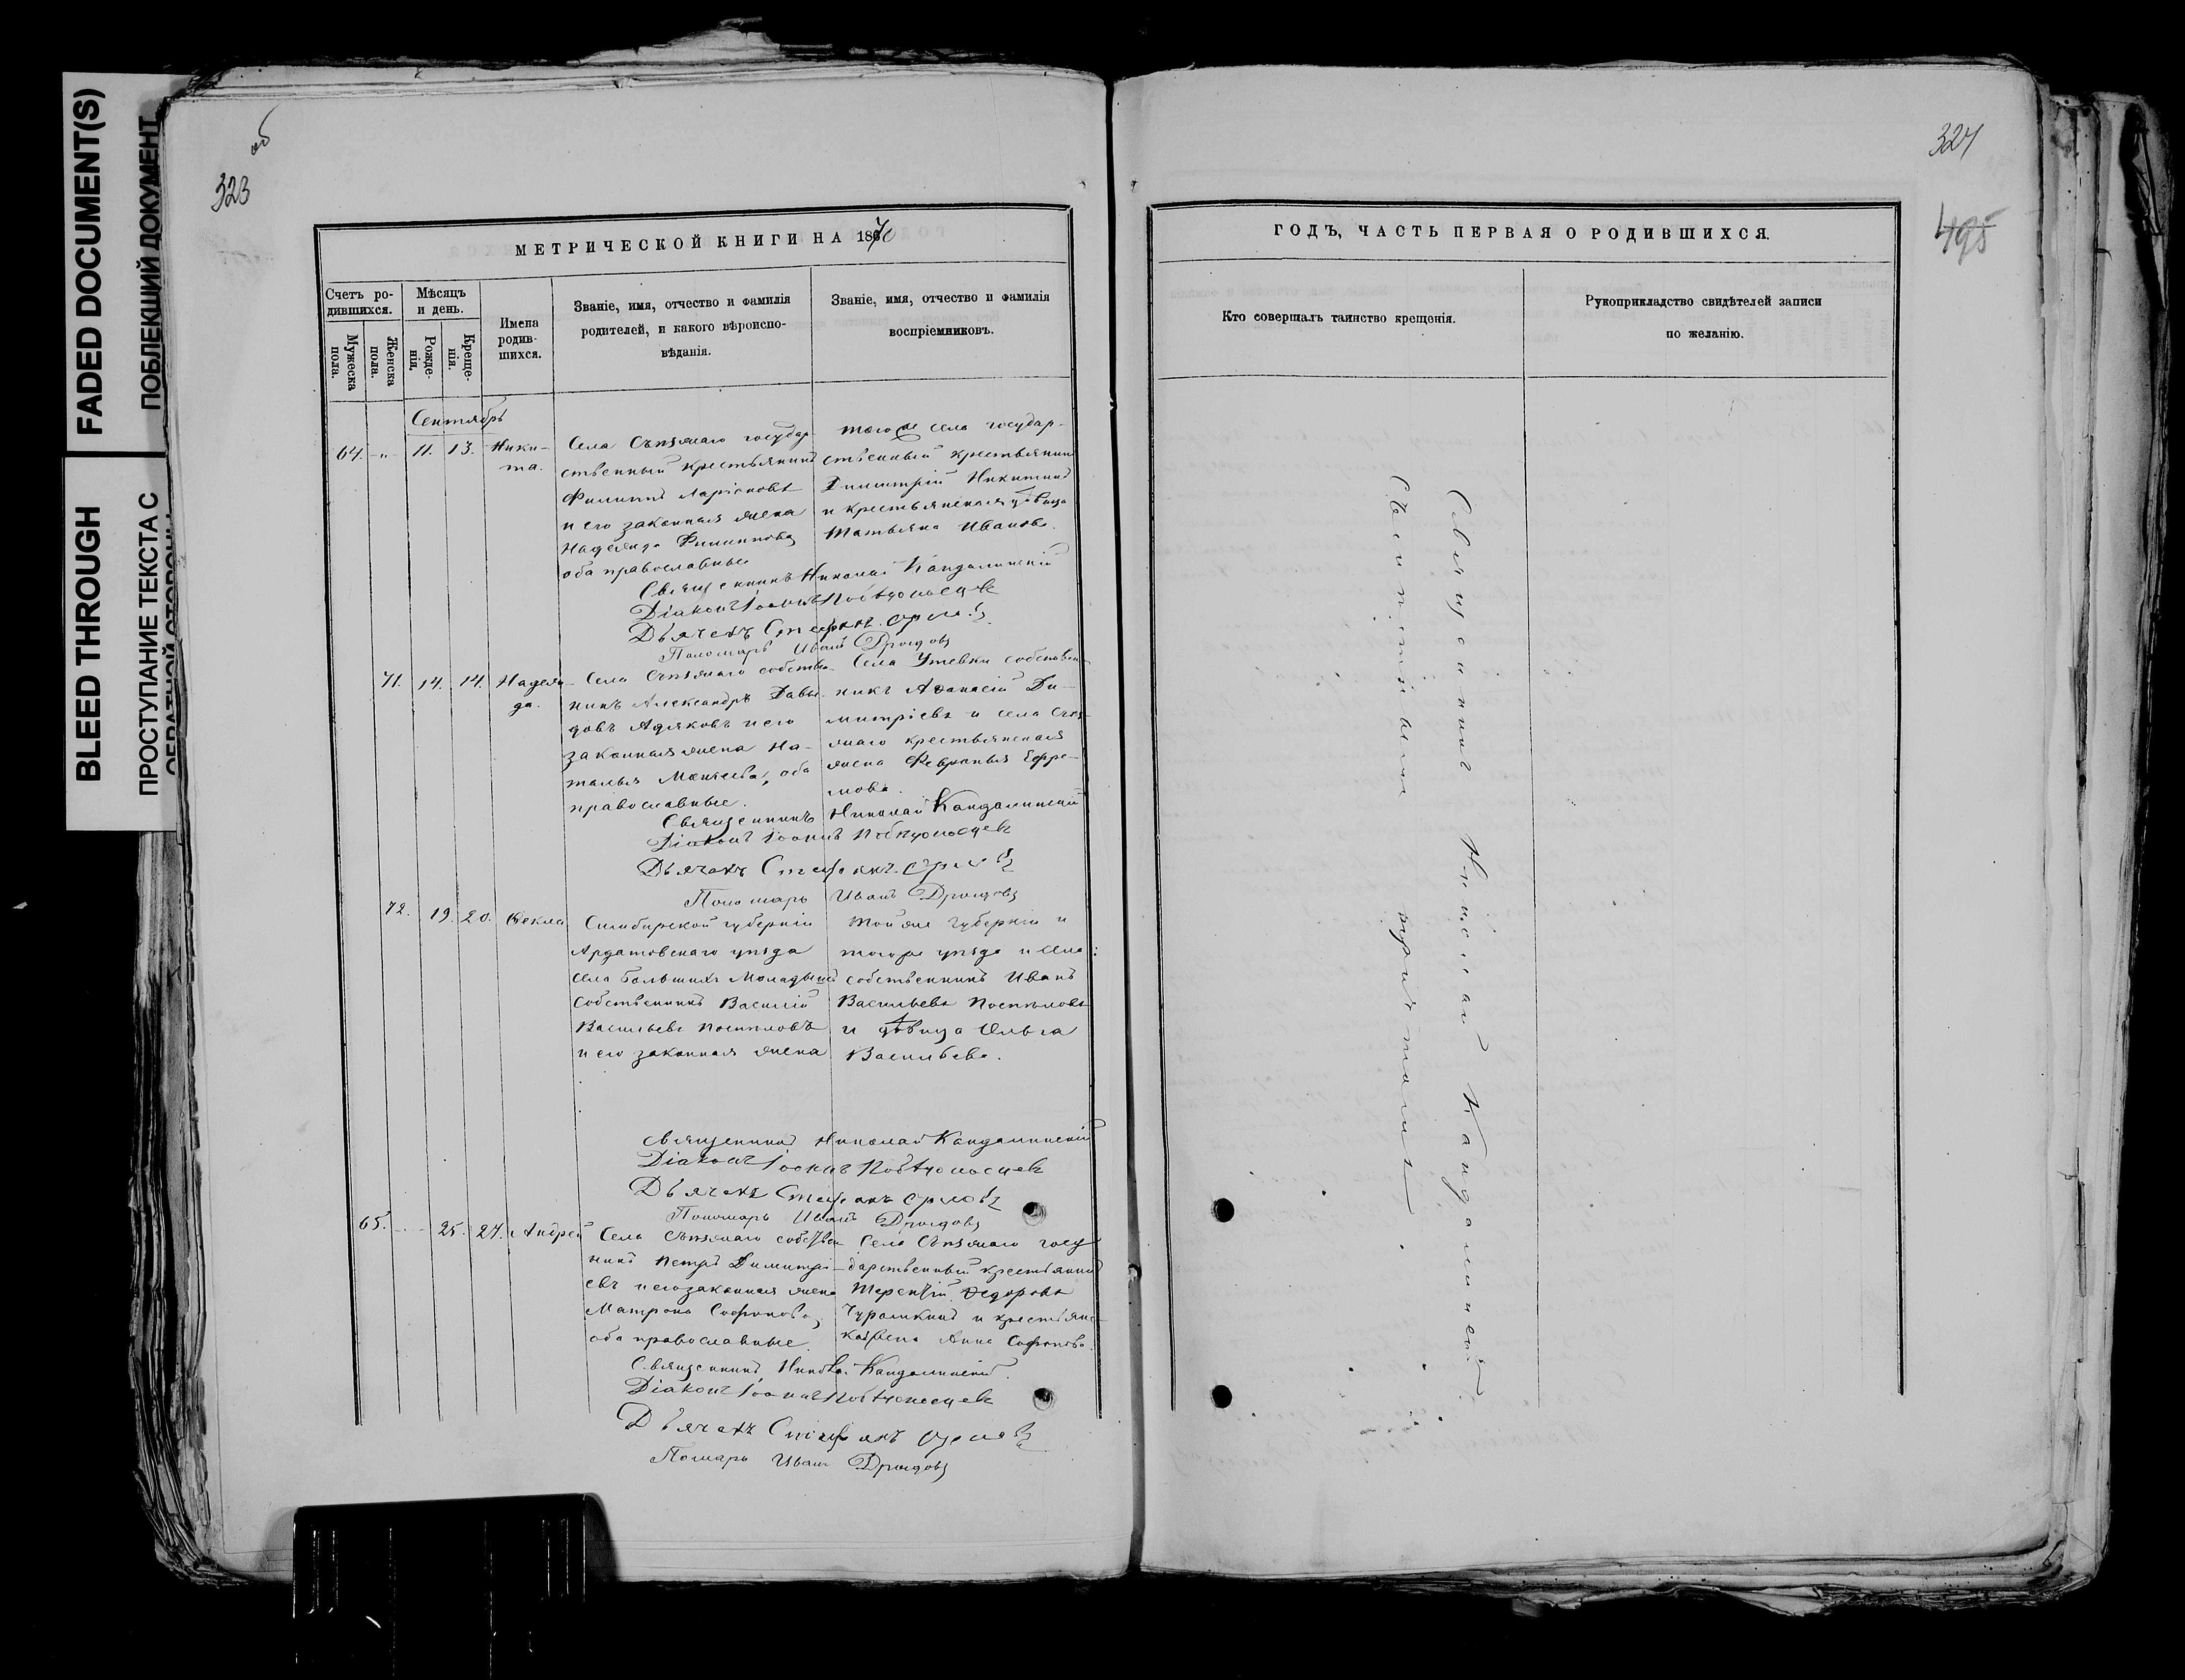 FADED DOCUMENT(S)
ПОБЛЕКШИЙ ДОКУМЕНТ
BLEED THROUGH
ПРОСТУПАНИЕ ТЕКСТА С
ОБРАТНОЙ СТОРОНЫ
об
323
МЕТРИЧЕСКОЙ КНИГИ НА 1870
Счетъ ро-
дившихся.
Мужеска
пола.
Женска
пола.
Мѣсяцъ
и день.
Рожде-
нія.
Креще-
нія.
Имена
родив-
шихся.
Званіе, имя, отчество и фамилія
родителей, и какого вѣроиспо-
вѣданія.
Званіе, имя, отчество и фамилія
воспріемниковъ.
Сентябрь
64. -"- 11. 13. Ники-
та.
Села Съѣзжаго государ
ственный крестьянинъ
Филиппъ Ларіоновъ
и его законная жена
Надежда Филиппова
оба православные
того же села государ-
ственный крестьянинъ
Димитрій Никитинъ
и крестьянская дѣвица
Татьяна Иванова.
Священникъ Николай Кандалинскій
Діаконъ Іоаннъ Побѣдоносцевъ
Дьячекъ Стефанъ Орловъ
Пономарь Иванъ Дроздовъ
71. 14. 14. Надеж-
да.
Села Съѣзжаго собствен-
никъ Александръ Давы-
довъ Адяковъ и его
законная жена На-
талья Моисеева, оба
православные.
Села Утевки собствен-
никъ Афанасій Ди-
митріевъ и села Съѣз-
жаго крестьянская
жена Февронья Ефре-
мова.
Священникъ Николай Кандалинскій
Діаконъ Іоаннъ Побѣдоносцевъ
Дьячекъ Стефанъ Орловъ
Пономарь Иванъ Дроздовъ
72. 19. 20. Ѳекла
Симбирской губерніи
Ардатовскаго уѣзда
села Большихъ Монадышъ
собственникъ Василій
Васильевъ Поспѣловъ
и его законная жена
Той же губерніи и
того же уѣзда и села
собственникъ Иванъ
Васильевъ Поспѣловъ
и дѣвица Ольга
Васильева.
Священникъ Николай Кандалинскій
Діаконъ Іоаннъ Побѣдоносцевъ
Дьячекъ Стефанъ Орловъ
Пономарь Иванъ Дроздовъ
65. 25. 27. Андрей
Села Съѣзжаго собствен
никъ Петръ Димитрі-
евъ и его законная жена
Матрона Софонова,
оба православные.
Села Съѣзжаго госу
дарственный крестьянинъ
Терентій Ѳедоровъ
Чурамкинъ и крестьянс-
кая жена Анна Софонова.
Священникъ Николай Кандалинскій.
Діаконъ Іоаннъ Побѣдоносцевъ
Дьячекъ Стефанъ Орловъ
Помарь Иванъ Дроздовъ
324
495
ГОДЪ, ЧАСТЬ ПЕРВАЯ О РОДИВШИХСЯ.
Кто совершалъ таинство крещенія.
Рукоприкладство свидѣтелей записи
по желанію.
Священникъ Николай Кандалинскій
съ причтомъ.